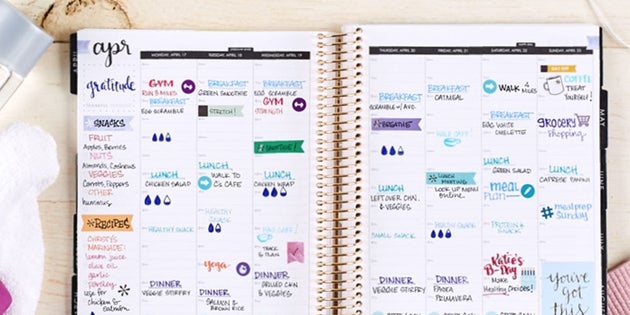 apr
gratitude
SNACKS
FRUIT
Apples, Berries,
NUTS
Almonds, Cashews
VEGGIES
Carrots, Peppers
OTHER
hummus
RECIPES
CHRISSY'S
MARINADE:
lemon juice
olive oil
garlic
parsley
use for
chicken &
salmon
MONDAY, APRIL 17
GYM
RUN 3 MILES
BREAKFAST
EGG SCRAMBLE
LUNCH
CHICKEN SALAD
HEALTHY SNACK
DINNER
VEGGIE STIRFRY
TUESDAY, APRIL 18
BREAKFAST
GREEN SMOOTHIE
STRETCH!
LUNCH
WALK TO
C's CAFE
HEALTHY
SNACK
yoga
DINNER
SALMON &
BROWN RICE
WEDNESDAY, APRIL 19
BREAKFAST
EGG SCRAMBLE
GYM
STRENGTH
LUNCH
CHICKEN WRAP
HALF CAFE
TRACK
& PLAN
DINNER
GRILLED CHKN
& VEGGIES
THURSDAY, APRIL 20
BREAKFAST
SCRAMBLE W/ AVO.
BREATHE
LUNCH
LEFTOVER CHKN.
& VEGGIES
SMALL SNACK
DINNER
VEGGIE STIRFRY
FRIDAY, APRIL 21
BREAKFAST
OATMEAL
HALF CAFE
LUNCH MEETING
LOOK UP MENU
ONLINE
DINNER
PASTA
PRIMAVERA
SATURDAY, APRIL 22
WALK 4
MILES
BREAKFAST
EGG WHITE
OMELETTE
LUNCH
GREEN SALAD
meal
PLAN
PROTEIN &
SNACK
Katie's
B-DAY
MAKE
Healthy Choices!
SUNDAY, APRIL 23
DAY OFF
COFFEE
TREAT
YOURSELF!
GROCERY
shopping
LUNCH
CAPRESE PANINI
#mealprep
Sunday
you've
GOT
this
APRIL
MAY
JUNE